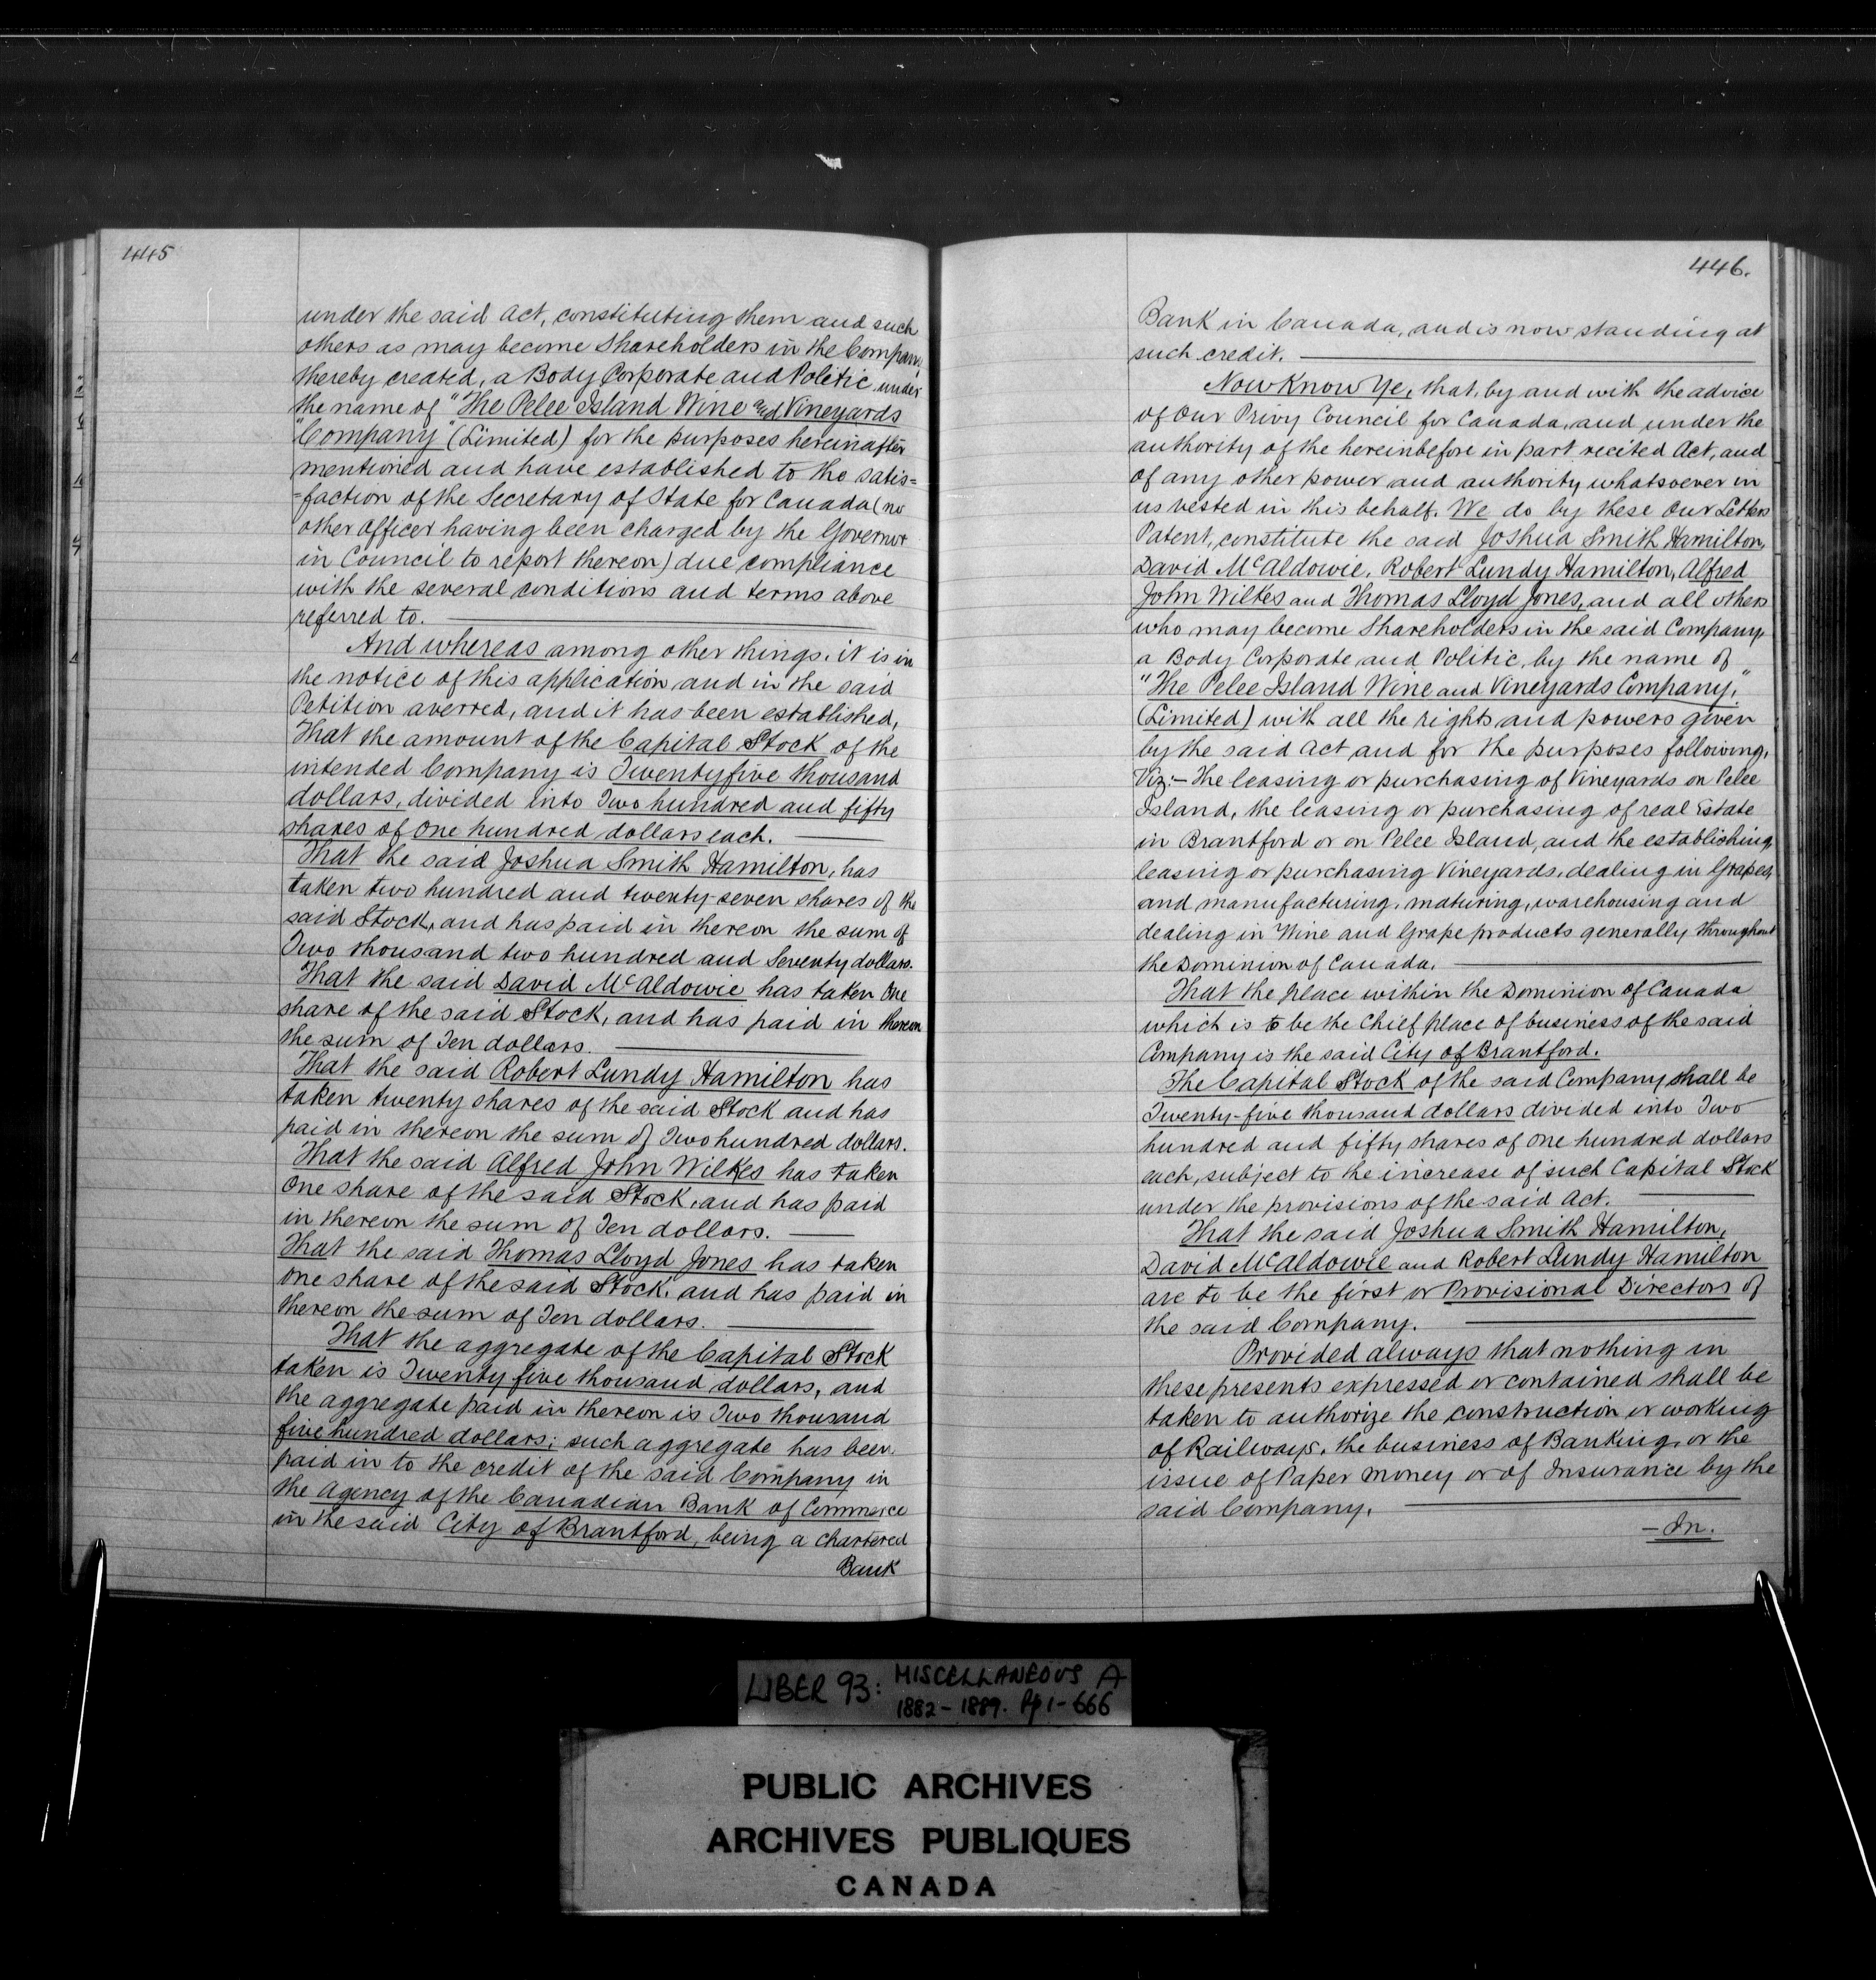 445
under the said Act, constituting them and such
others as may become Shareholders in the Company
thereby created, a Body Corporate and Politic under
the name of "The Pelee Island Wine and Vineyards
"Company" (Limited) for the purposes hereinafter
mentioned and have established to the satis=
=faction of the Secretary of State for Canada (no
other Officer having been charged by the Governor
in Council to report thereon) due compliance
with the several conditions and terms above
referred to.
And whereas among other things, it is in
the notice of this application and in the said
Petition averred, and it has been established,
That the amount of the Capital Stock of the
intended Company is Twenty five thousand
dollars, divided into Two hundred and fifty
shares of One hundred dollars each.
That the said Joshua Smith Hamilton, has
taken two hundred and twenty-seven shares of the
said Stock, and has paid in thereon the sum of
Two thousand two hundred and Seventy dollars.
That the said David McAldowie has taken One
share of the said Stock, and has paid in thereon
the sum of Ten dollars.
That the said Robert Lundy Hamilton has
taken twenty shares of the said Stock and has
paid in thereon the sum of Two hundred dollars.
That the said Alfred John Wilkes has taken
One share of the said Stock, and has paid
in thereon the sum of Ten dollars.
That the said Thomas Lloyd Jones has taken
One share of the said Stock, and has paid in
thereon the sum of Ten dollars.
That the aggregate of the Capital Stock
taken is Twenty five thousand dollars, and
the aggregate paid in thereon is Two thousand
five hundred dollars; such aggregate has been
paid in to the credit of the said Company in
the Agency of the Canadian Bank of Commerce
in the said City of Brantford, being a chartered
Bank
446.
Bank in Canada, and is now standing at
such credit.
Now Know Ye, that, by and with the advice
of Our Privy Council for Canada, and under the
authority of the hereinbefore in part recited Act, and
of any other power and authority whatsoever in
us vested in this behalf. We do by these Our Letters
Patent, constitute the said Joshua Smith Hamilton,
David McAldowie, Robert Lundy Hamilton, Alfred
John Wilkes and Thomas Lloyd Jones, and all others
who may become Shareholders in the said Company
a Body Corporate and Politic, by the name of
"The Pelee Island Wine and Vineyards Company,"
(Limited) with all the rights and powers given
by the said Act and for the purposes following,
Viz:— The leasing or purchasing of Vineyards on Pelee
Island, the leasing or purchasing of real Estate
in Brantford or on Pelee Island, and the establishing,
leasing or purchasing Vineyards, dealing in Grapes,
and manufacturing, maturing, warehousing and
dealing in Wine and Grape products generally throughout
the Dominion of Canada.
That the place within the Dominion of Canada
which is to be the Chief place of business of the said
Company is the said City of Brantford.
The Capital Stock of the said Company shall be
Twenty-five thousand dollars divided into Two
hundred and fifty shares of One hundred dollars
each, subject to the increase of such Capital Stock
under the provisions of the said Act.
That the said Joshua Smith Hamilton,
David McAldowie and Robert Lundy Hamilton
are to be the first or Provisional Directors of
the said Company.
Provided always that nothing in
these presents expressed or contained shall be
taken to authorize the construction or working
of Railways, the business of Banking, or the
issue of Paper money or of Insurance by the
said Company.
—In.
LIBER 93: MISCELLANEOUS A
1882-1889. Pp 1-666
PUBLIC ARCHIVES
ARCHIVES PUBLIQUES
CANADA